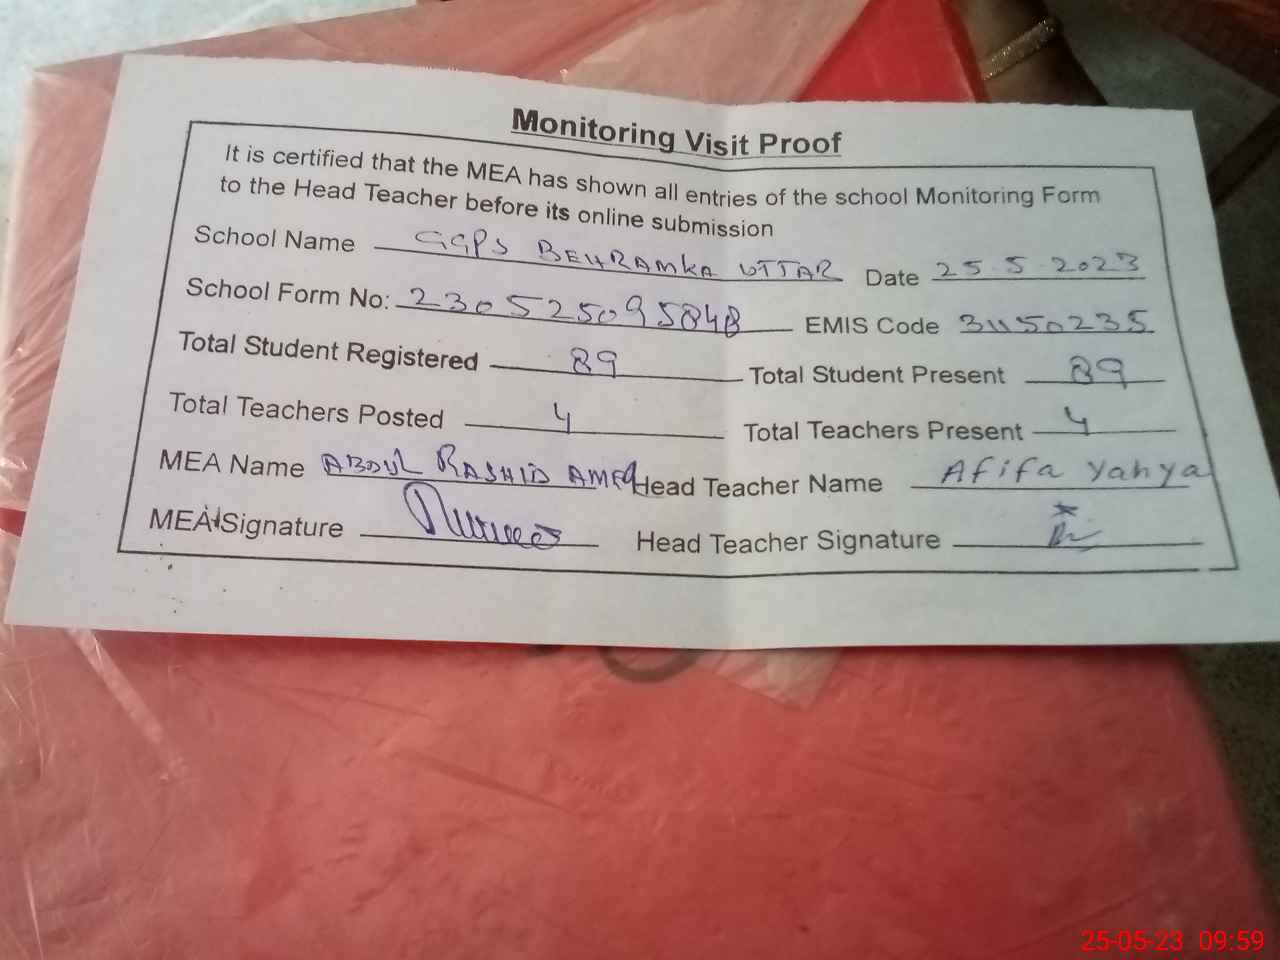 Monitoring Visit Proof
It is certified that the MEA has shown all entries of the school Monitoring Form
to the Head Teacher before its online submission
School Name GGPS BEHRAMKA UTTAR Date 25.5.2023
School Form No: 230525095848 EMIS Code 31150235
Total Student Registered 89 Total Student Present 89
Total Teachers Posted 4 Total Teachers Present 4
MEA Name ABDUL RASHID Head Teacher Name Afifa Yahya
MEA Signature Head Teacher Signature
25-05-23 09:59